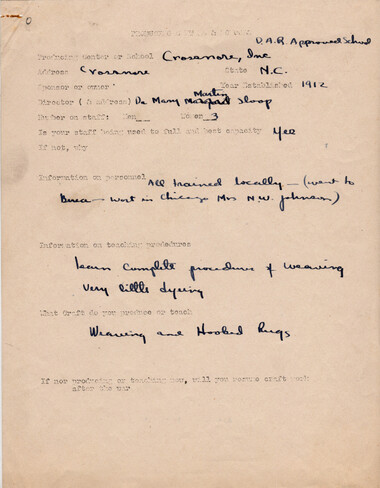 D.A.R Approved School
Producing Center or School Crossnore, Inc
Address Crossnore State N.C.
Sponsor or owner Year Established 1912
Director (& address) Dr. Mary Martin Sloop
Number on staff: Men Women 3
Is your staff being used to full and best capacity yes
If not, why
Information on personnel All trained locally - (went to
Berea - work in Chicago Mrs N.W. Johnson)
Information on teaching procedures
Learn Complete procedures of Weaving
Very little dyeing
What Craft do you produce or teach
Weaving and Hooked Rugs
If nor producing or teaching now, will you resume craft work
after the war